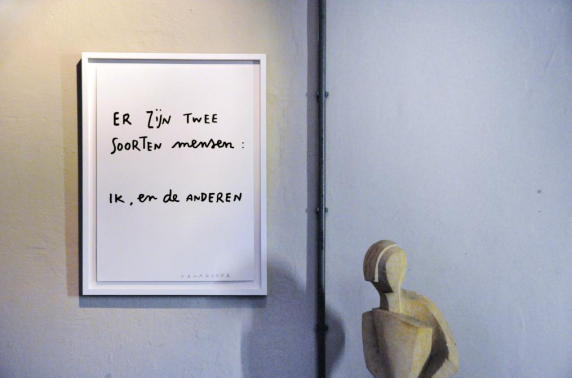 ER ZIJN TWEE
SOORTEN mensen :
IK, en de ANDEREN